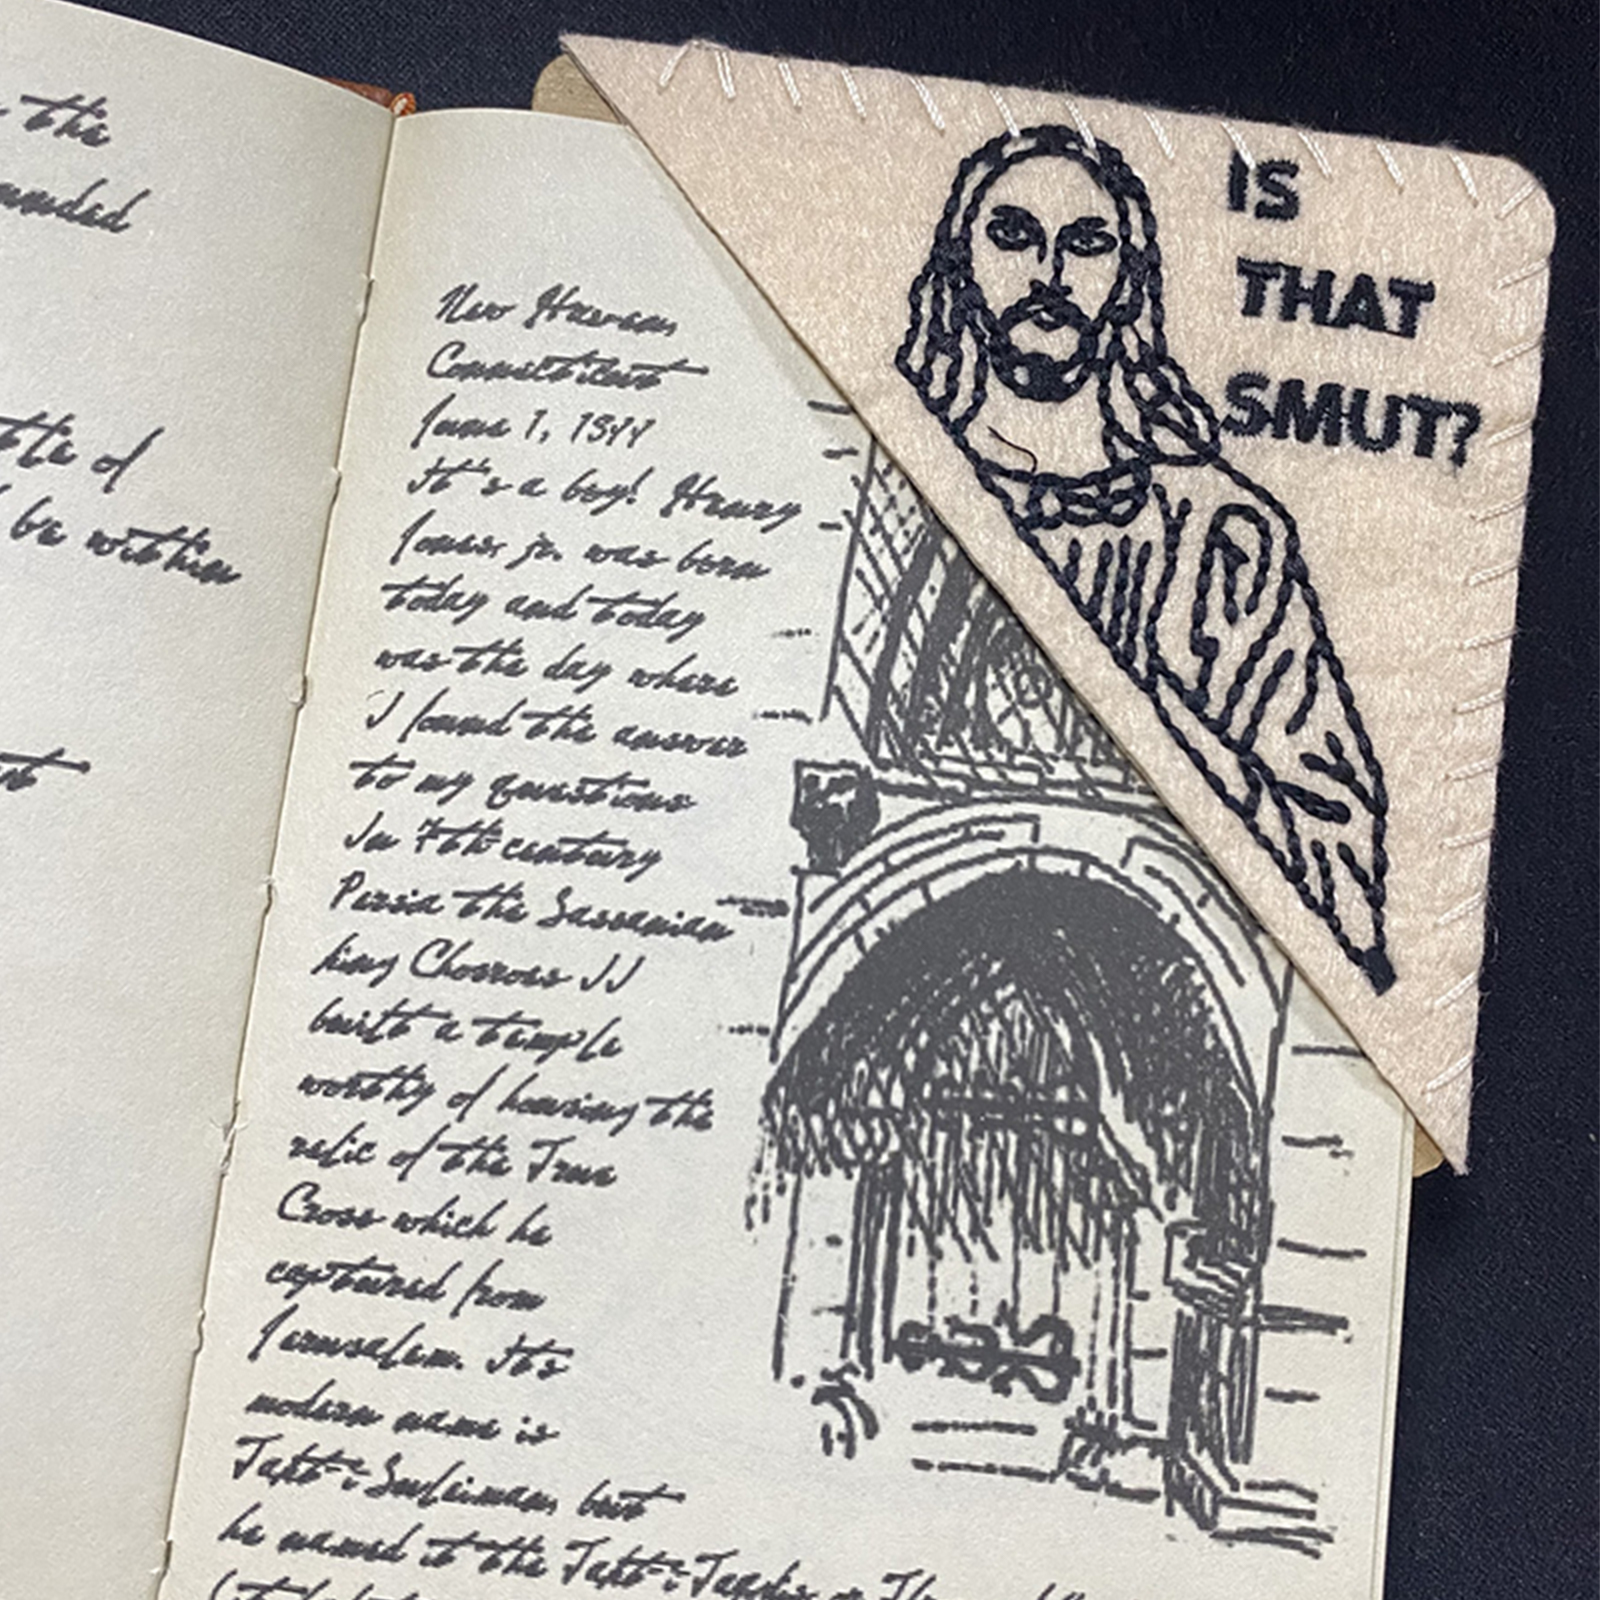 the
ended
of
be within
New Haven,
Connecticut
June 1, 1944
It's a boy! Henry
Jones, jr. was born
today and today
was the day where
I found the answer
to my questions
In 7th century
Persia the Sassanian
king Chosroes II
built a temple
worthy of housing the
relic of the True
Cross which he
captured from
Jerusalem. Its
modern name is
Takt-i-Suleiman, but
he named it the Takt-i-Taqdis or
IS
THAT
SMUT?